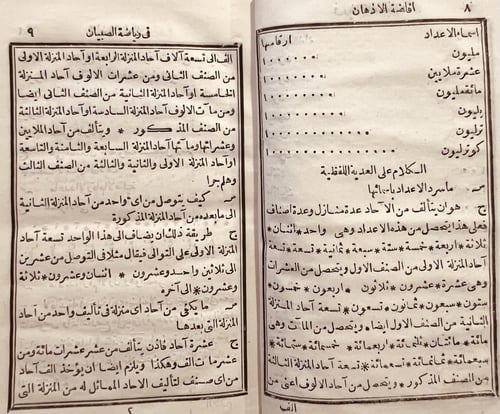 ٨ افاضة الاذهان
اسماء الاعداد ارقامها
مليون ١٠٠٠٠٠٠
عشرة ملايين ١٠٠٠٠٠٠٠
مائة مليون ١٠٠٠٠٠٠٠٠
بليون
ترليون
كوترليون
الكلام على العدية اللفظية
س ما سرد الاعداد باسمائها
ج هو ان يتألف من الآحاد عدة منازل وعدة اصناف
فعلى هذا يتحصل من هذه الاعداد وهى واحد * اثنان *
ثلاثة * اربعة * خمسة * ستة * سبعة * ثمانية * تسعة * تسعة
آحاد المنزلة الاولى من الصنف الاول ويتحصل من العشرات
وهى عشرة * عشرون * ثلاثون * اربعون * خمسون *
ستون * سبعون * ثمانون * تسعون * تسعة آحاد المنزلة
الثانية من الصنف الاول ايضا ويتحصل من المآت وهى
مائة * مائتان * ثلثمائة * اربعمائة * خمسمائة * ستمائة *
سبعمائة * ثمانمائة * تسعمائة * تسعة آحاد المنزلة الثالثة
من الصنف المذكور * ويتحصل من آحاد الالوف اعنى من
الف
فى رياضة الصبيان ٩
الف الى تسعة آلاف آحاد المنزلة الرابعة او آحاد المنزلة الاولى
من الصنف الثانى ومن عشرات الالوف آحاد المنزلة
الخامسة او آحاد المنزلة الثانية من الصنف الثانى ايضا
ومن مآت الالوف آحاد المنزلة السادسة او آحاد المنزلة الثالثة
من الصنف المذكور * ويتألف من آحاد الملايين
وعشراتها ومآتها آحاد المنزلة السابعة والثامنة والتاسعة
او آحاد المنزلة الاولى والثانية والثالثة من الصنف الثالث
وهلم جرا
س كيف يتوصل من اى واحد من آحاد المنزلة الثانية
الى ما بعده من آحاد المنزلة المذكورة
ج طريقة ذلك ان يضاف الى هذا الواحد تسعة آحاد
المنزلة الاولى على التوالى فيقال مثلا فى التوصل من عشرين
الى ثلاثين واحد وعشرون * اثنان وعشرون * ثلاثة
وعشرون * الى آخره
س ما يكفى من آحاد اى منزلة فى تأليف واحد من آحاد
المنزلة التى بعدها
ج عشرة آحاد فاذن يتألف من عشر عشرات مائة ومن
عشر مآت الف وهكذا ويلزم ايضا ان يؤخذ الف آحاد
من اى صنف لتأليف الآحاد المماثل له من المنزلة التى
٢